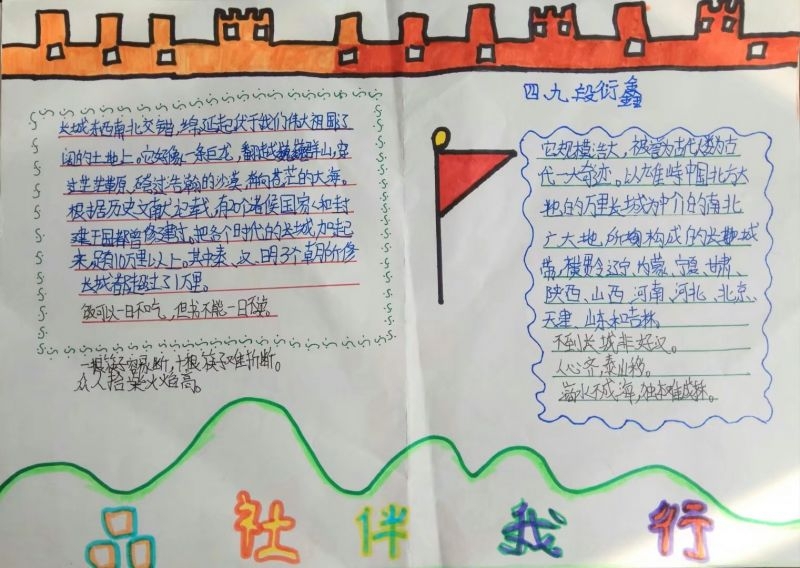 长城东西南北交错，绵延起伏于我们伟大祖国辽
阔的土地上。它好像一条巨龙，翻越巍巍群山，穿
过茫茫草原，跨过浩瀚的沙漠，奔向苍茫的大海。
根据历史文献记载，有20个诸侯国家和封
建王国都曾修建过，把各个时代的长城加起
来，总有10万里以上。其中秦、汉、明3个朝所修
长城都超过了1万里。
饭可以一日不吃，但书不能一日不读。
一根筷子容易断，十根筷子难折断。
众人拾柴火焰高。
四、九 段衍鑫
它规模浩大，被誉为古代人类为古
代一大奇迹。以雄峙中国北方大
地的万里长城为中介的南北
广大地，所构成的长城
带，横贯今辽宁、内蒙、宁夏、甘肃、
陕西、山西、河南、河北、北京、
天津、山东和吉林。
不到长城非好汉。
人心齐，泰山移。
滴水不成海，独木难成林。
品社伴我行